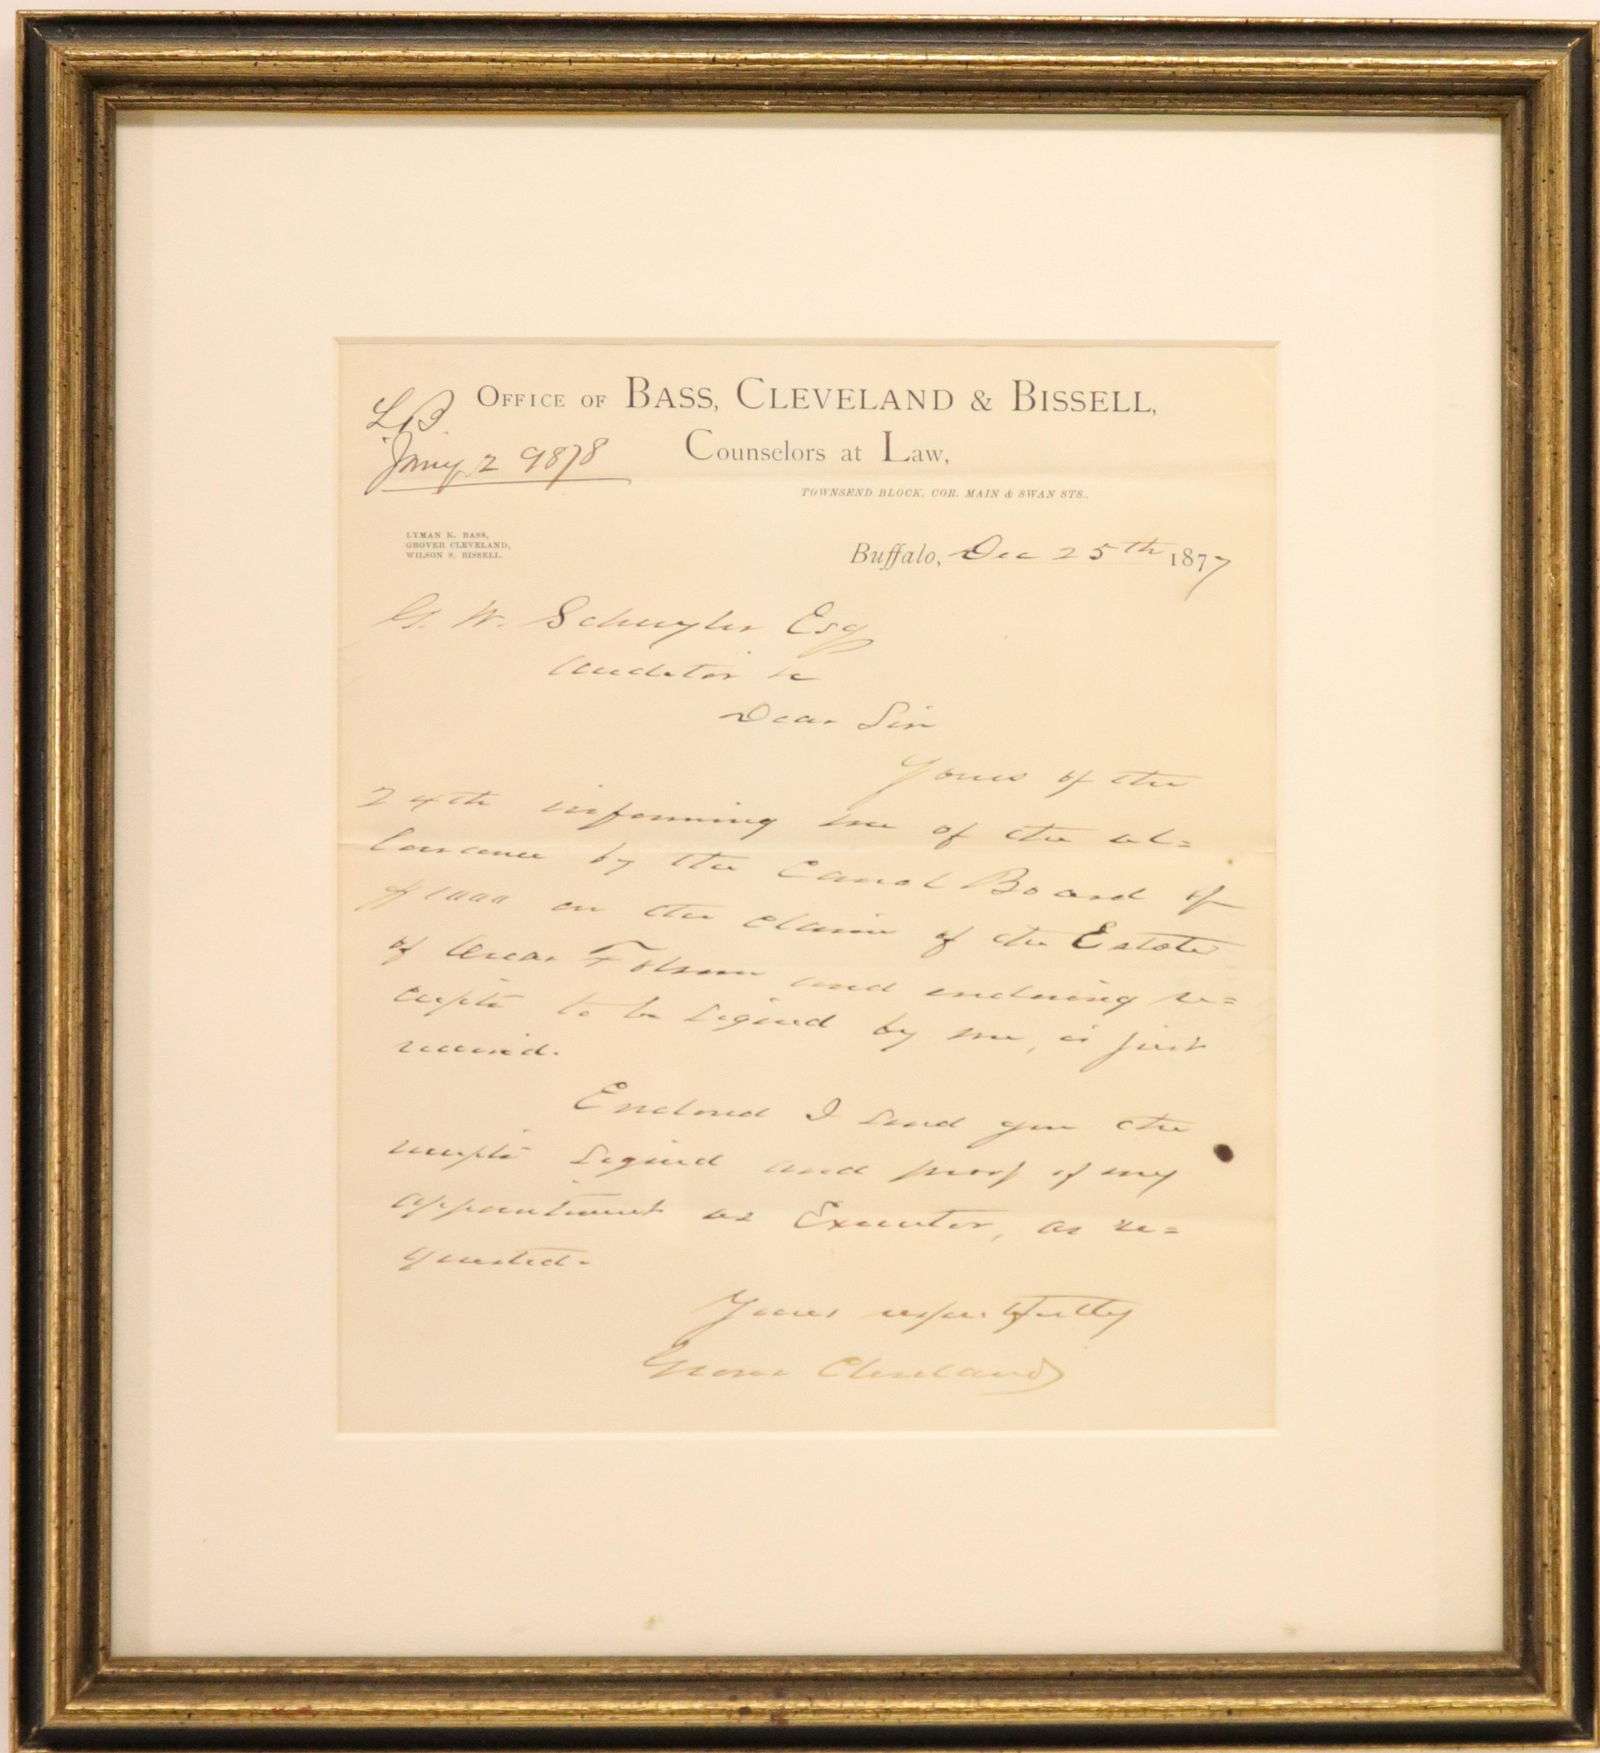 OFFICE OF BASS, CLEVELAND & BISSELL,
Counselors at Law,
TOWNSEND BLOCK, COR. MAIN & SWAN STS.,
LYMAN K. BASS,
GROVER CLEVELAND,
WILSON S. BISSELL.
Buffalo, Dec 25th 1877
G. W. Schuyler Esq
Auditor &c
Dear Sir
Yours of the
24th informing me of the al=
lowance by the Canal Board of
$1000 on the claim of the Estate
of Oscar Folsom and enclosing re=
ceipts to be signed by me, is just
received.
Enclosed I send you the
receipts signed and proof of my
appointment as Executor, as re=
quested.
Yours respectfully
Grover Cleveland